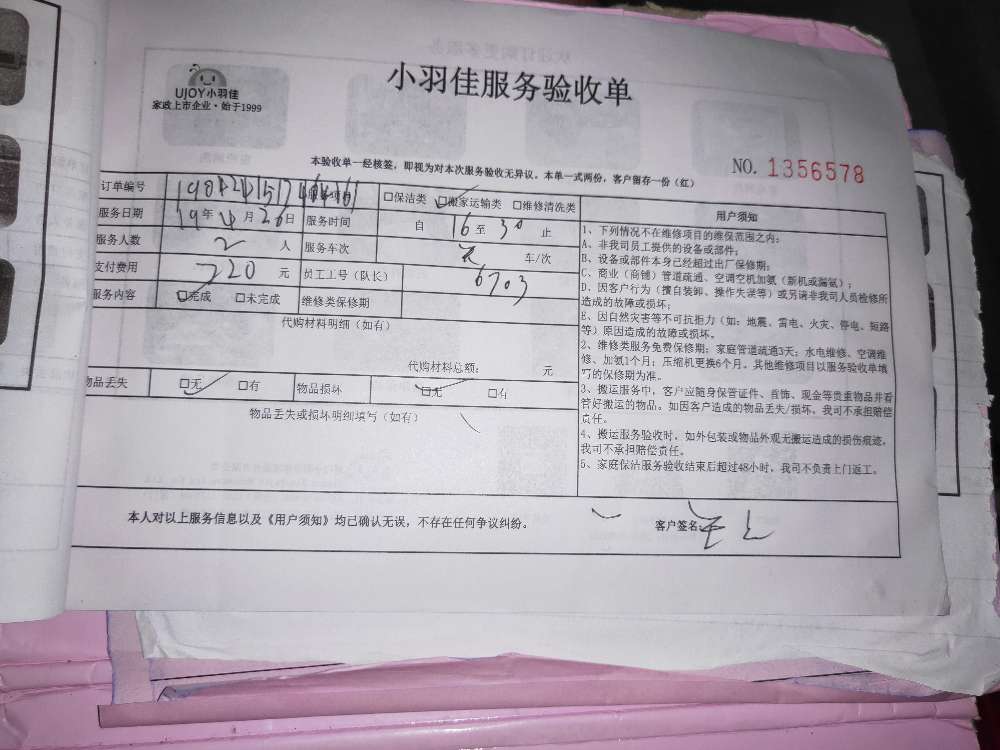 UJOY小羽佳
家政上市企业·始于1999
小羽佳服务验收单
本验收单一经核签，即视为对本次服务验收无异议。本单一式两份，客户留存一份（红）
NO. 1356578
订单编号 □保洁类 ☑搬家运输类 □维修清洗类
服务日期 19年4月26日 服务时间 自 16 至 30 止
服务人数 2 人 服务车次 车/次
支付费用 220 元 员工工号（队长） 6703
服务内容 ☑完成 □未完成 维修类保修期
代购材料明细（如有）
代购材料总额： 元
物品丢失 ☑无 □有 物品损坏 ☑无 □有
物品丢失或损坏明细填写（如有）
用户须知
1、下列情况不在维修项目的维保范围之内：
A、非我司员工提供的设备或部件；
B、设备或部件本身已经超过出厂保修期；
C、商业（商铺）管道疏通、空调空机加氨（新机或漏氨）；
D、因客户行为（擅自装卸、操作失误等）或另请非我司人员检修所
造成的故障或损坏；
E、因自然灾害等不可抗拒力（如：地震、雷电、火灾、停电、短路
等）原因造成的故障或损坏。
2、维修类服务免费保修期：家庭管道疏通3天；水电维修、空调维
修、加氨1个月；压缩机更换6个月。其他维修项目以服务验收单填
写的保修期为准。
3、搬运服务中，客户应随身保管证件、首饰、现金等贵重物品并看
管好搬运的物品。如因客户造成的物品丢失/损坏，我司不承担赔偿
责任。
4、搬运服务验收时，如外包装或物品外观无搬运造成的损伤痕迹，
我司不承担赔偿责任。
5、家庭保洁服务验收结束后超过48小时，我司不负责上门返工。
本人对以上服务信息以及《用户须知》均已确认无误，不存在任何争议纠纷。
客户签名：